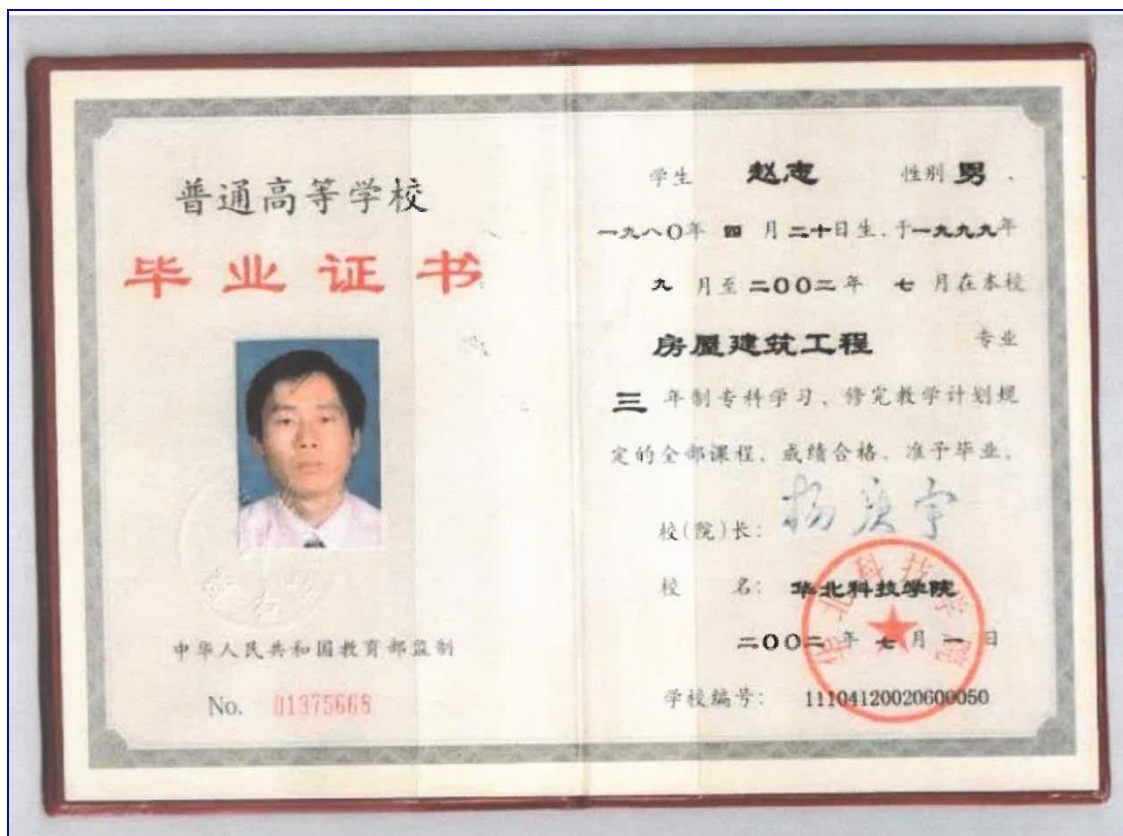 普通高等学校
毕业证书
中华人民共和国教育部监制
No. 01375668
学生 赵志 性别 男.
一九八〇年 四 月 二十日生,于一九九九年
九 月至 二〇〇二年 七 月在本校
房屋建筑工程 专业
三 年制专科学习、修完教学计划规
定的全部课程、成绩合格、准予毕业。
校(院)长: 杨庚宇
校 名: 华北科技学院
华北科技学院
二〇〇二 年 七 月 一 日
学校编号: 11104120020600050